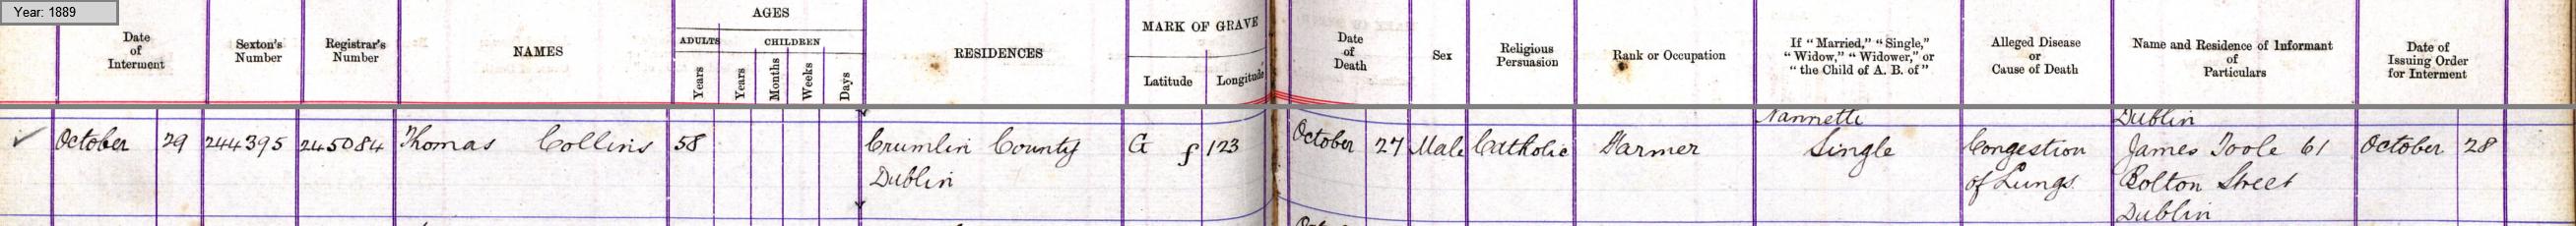 Year: 1889
Date of Interment
Sexton's Number
Registrar's Number
NAMES
AGES
ADULTS
CHILDREN
Years
Years
Months
Weeks
Days
RESIDENCES
MARK OF GRAVE
Latitude
Longitude
Date of Death
Sex
Religious Persuasion
Rank or Occupation
If "Married," "Single,"
"Widow," "Widower," or
"the Child of A. B. of"
Alleged Disease
or
Cause of Death
Name and Residence of Informant
of
Particulars
Date of
Issuing Order
for Interment
Nannetti
Dublin
October 29 244395 245084 Thomas Collins 58 Crumlin County G f 123 October 27 Male Catholic Farmer Single Congestion James Toole 61 October 28
Dublin of Lungs Bolton Street
Dublin